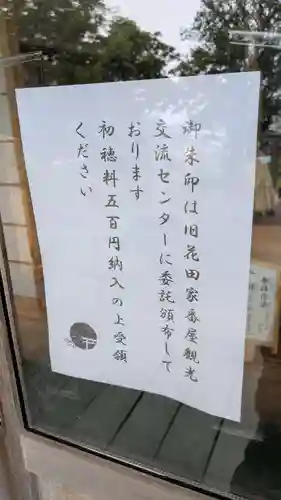 御朱印は旧花田家番屋観光
交流センターに委託頒布して
おります
初穂料五百円納入の上受領
ください